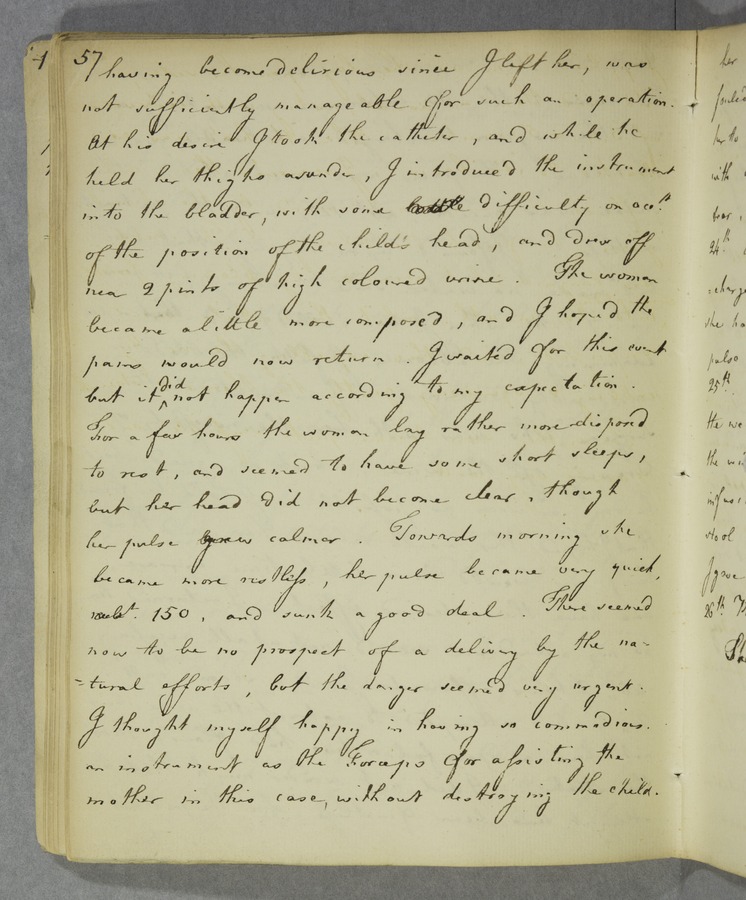 57
having become delirious since I left her, was
not sufficiently manageable for such an operation.
At his desire I took the catheter, and while he
held her thighs asunder, I introduced the instrument
into the bladder, with some difficulty on acct.
of the position of the child's head, and drew off
near 2 pints of high coloured urine. The woman
became a little more composed, and I hoped the
pains would now return. I waited for this event
but it did not happen according to my expectation.
For a few hours the woman lay rather more disposed
to rest, and seemed to have some short sleeps,
but her head did not become clear, though
her pulse grew calmer. Towards morning she
became more restless, her pulse became very quick,
150, and sunk a good deal. There seemed
now to be no prospect of a delivery by the na=
=tural efforts, but the danger seemed very urgent.
I thought myself happy in having so commodious
an instrument as the Forceps for assisting the
mother in this case, without destroying the child.
her
with
24th
=charge
she ha
pulse
25th
stool
I gave
26th